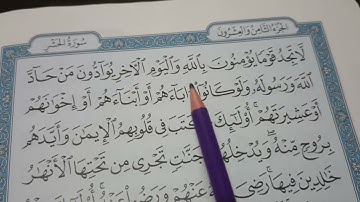 الجزء الثامن والعشرون
سورة الحشر
لَّا تَجِدُ قَوْمًا يُؤْمِنُونَ بِٱللَّهِ وَٱلْيَوْمِ ٱلْآخِرِ يُوَآدُّونَ مَنْ حَآدَّ
ٱللَّهَ وَرَسُولَهُۥ وَلَوْ كَانُوٓا۟ ءَابَآءَهُمْ أَوْ أَبْنَآءَهُمْ أَوْ إِخْوَٰنَهُمْ
أَوْ عَشِيرَتَهُمْ ۚ أُو۟لَٰٓئِكَ كَتَبَ فِى قُلُوبِهِمُ ٱلْإِيمَٰنَ وَأَيَّدَهُم
بِرُوحٍ مِّنْهُ ۖ وَيُدْخِلُهُمْ جَنَّٰتٍ تَجْرِى مِن تَحْتِهَا ٱلْأَنْهَٰرُ
خَٰلِدِينَ فِيهَا ۚ رَضِىَ عَنْهُمْ وَرَضُوا۟ عَنْهُ ۚ أُو۟لَٰٓئِكَ